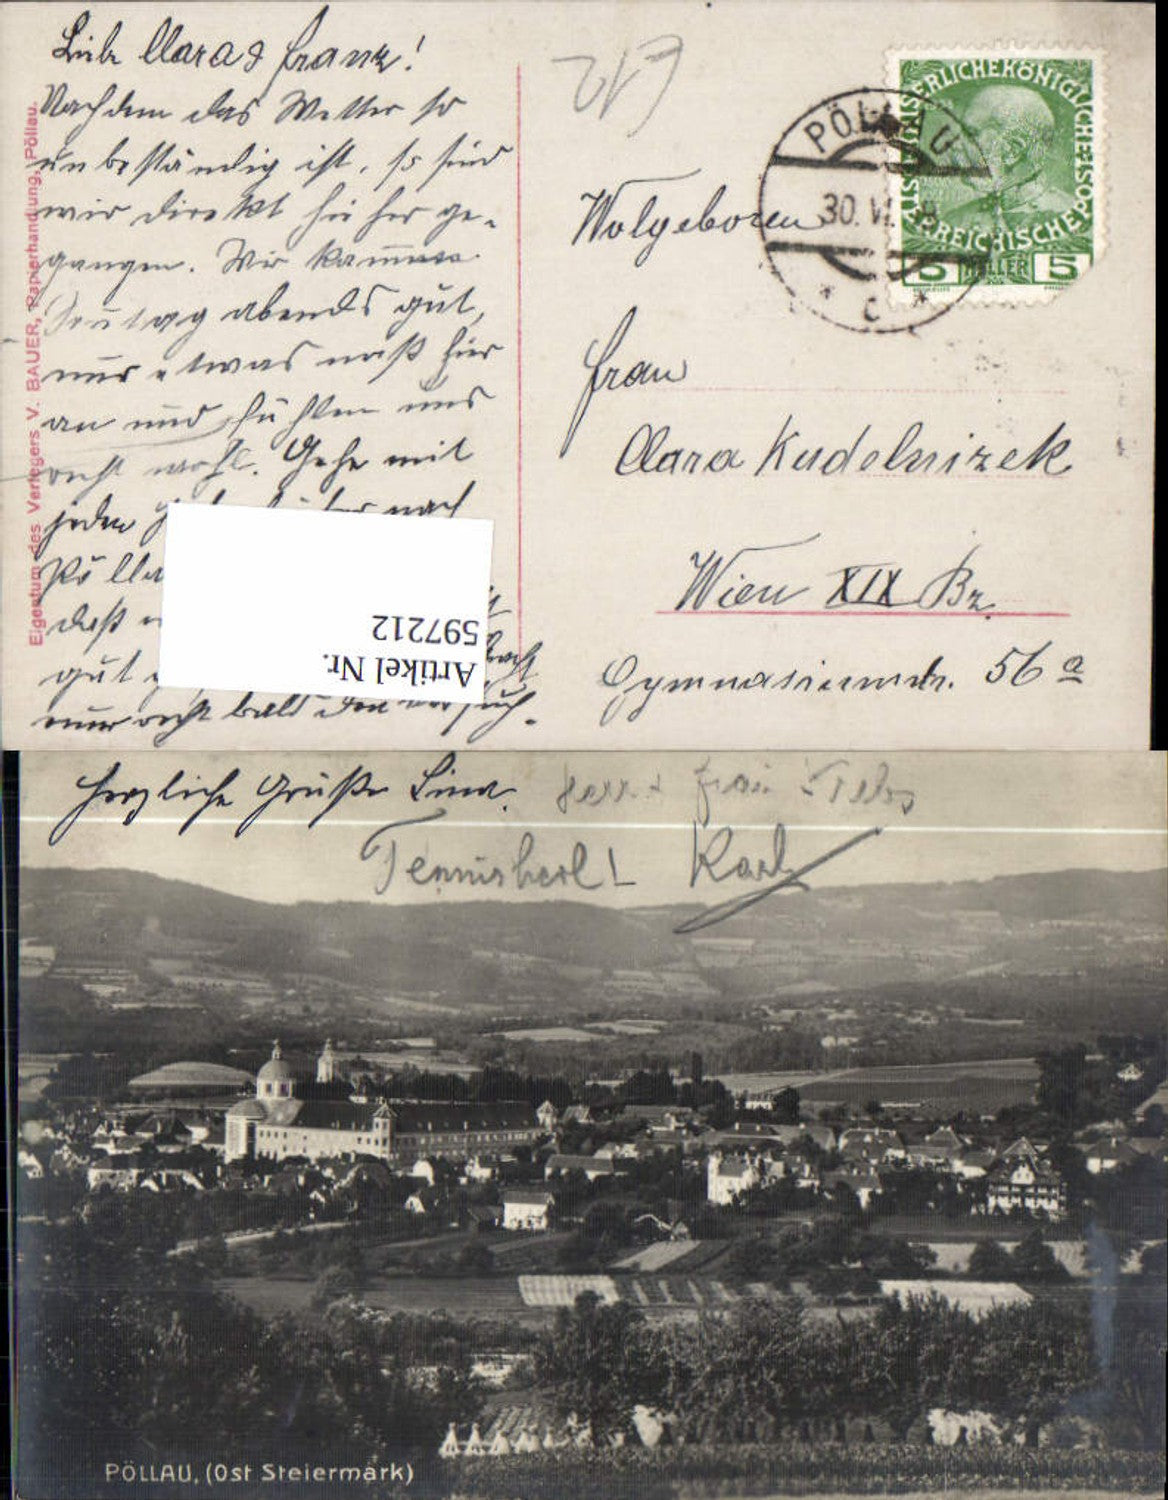 Liebe Clara & Franz!
Nachdem das Wetter so
unbeständig ist, so sind
wir direkt hieher ge-
gangen. Wir kamen
Sonntag abends gut,
nur etwas naß hier
an und fühlen uns
recht wohl. Gehe mit
jeden nach
Pölla
daß
gut
nur recht bald den
Eigentum des Verlegers V. BAUER, Papierhandlung, Pöllau.
KAISERLICHEKÖNIGLICHE
ÖSTERREICHISCHE POST
5 HELLER 5
PÖLLAU
30. VI.
* c *
Wolgeboren
Frau
Clara Kudelnizek
Wien XIX Bz.
Gymnasiumstr. 56 a
Artikel Nr.
597212
Herzliche Grüße Lina.
Herr & Frau
Karl
PÖLLAU, (Ost Steiermark)